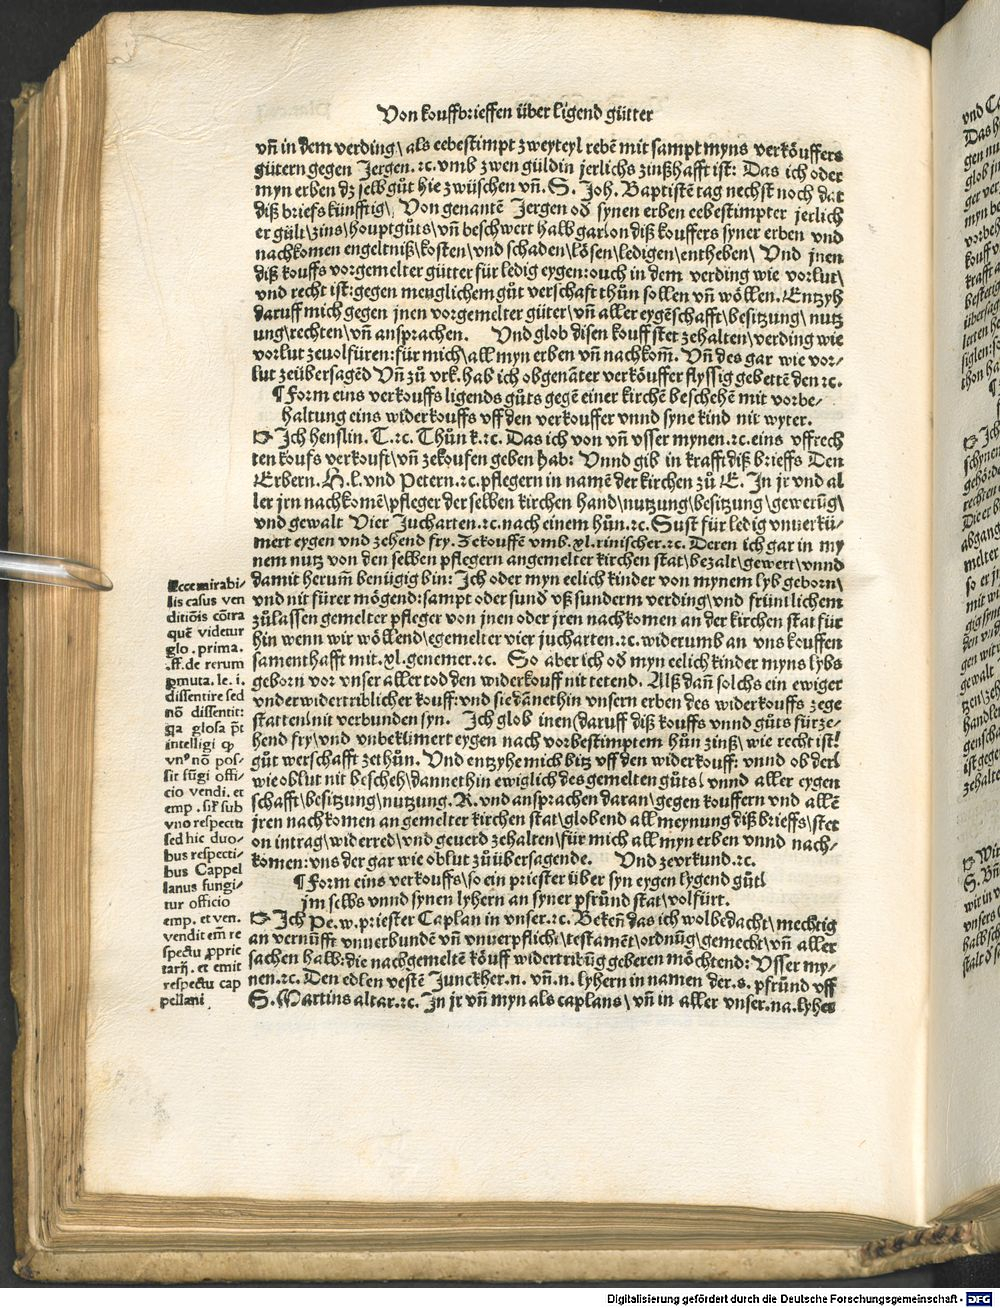 Von kouffbrieffen über ligend gütter
vn̄ in dem verding\ als eebestimpt zweyteyl rebē mit sampt myns verköuffers
gütern gegen Jergen. ꝛc. vmb zwen güldin jerlichs zinßhafft ist: Das ich oder
myn erben dz selb gůt hie zwüschen vn̄. S. Joh. Baptistē tag nechst noch dat
diß briefs künfftig\ Von genantē Jergen od̕ synen erben eebestimpter jerlich
er gült\zins\houptgůts\vn̄ beschwert halb gar\on diß kouffers syner erben vnd
nachkomen engeltniß\kosten\vnd schaden\lösen\ledigen\entheben\ Vnd jnen
diß kouffs vorgemelter gütter für ledig eygen: ouch in dem verding wie vorlut\
vnd recht ist: gegen menglichem gůt verschaft thůn sollen vn̄ wöllen. Entzyh
daruff mich gegen jnen vorgemelter güter\vn̄ aller eygēschafft\besitzung\ nutz
ung\rechten\vn̄ ansprachen. Vnd glob disen kouff stet zehalten\verding wie
vorlut zeuolfüren: für mich\all myn erben vn̄ nachkom̄. Vn̄ des gar wie vor-
lut zeübersagēd Vn̄ zů vrk. hab ich obgenāter verköuffer flyssig gebettē den ꝛc.
¶ Form eins verkouffs ligends gůts gegē einer kirchē beschehē mit vorbe-
haltung eins widerkouffs vff den verkouffer vnnd syne kind nit wyter.
☞ Ich henslin. T. ꝛc. Thůn k. ꝛc. Das ich von vn̄ vsser mynen. ꝛc. eins vffrech
ten koufs verkouft\vn̄ zekoufen geben hab: Vnnd gib in krafft diß brieffs Den
Erbern. H. l. vnd Petern. ꝛc. pflegern in namē der kirchen zů E. In jr vnd al
ler jrn nachkomē\pfleger der selben kirchen hand\nutzung\besitzung\gewerūg\
vnd gewalt Vier Jucharten. ꝛc. nach einem hůn. ꝛc. Sust für ledig vnuerkü-
mert eygen vnd zehend fry. Zekouffē vmb. xl. rinischer. ꝛc. Deren ich gar in my
nem nutz von den selben pflegern angemelter kirchen stat\bezalt\gewert\vnnd
damit herum̄ benügig bin: Ich oder myn eelich kinder von mynem lyb geborn\
vnd nit fürer mögend: sampt oder sund vß sunderm verding\vnd früntlichem
zůlassen gemelter pfleger von jnen oder jren nachkomen an der kirchen stat für
hin wenn wir wöllend\egemelter vier jucharten. ꝛc. widerumb an vns kouffen
samenthafft mit. xl. genemer. ꝛc. So aber ich od̕ myn eelich kinder myns lybs
geborn vor vnser aller tod den widerkouff nit tetend. Alß dan̄ sol chs ein ewiger
vnderwidertriblicher kouff: vnd sie dānethin vnsern erben des widerkouffs zege
statten\nit verbunden syn. Ich glob inen\daruff diß kouffs vnnd gůts für ze-
hend fry\vnd vnbeklimert eygen nach vorbestimptem hůn zinß\ wie recht ist!
gůt werschafft zethůn. Vnd entzyhe mich bitz vff den widerkouff: vnnd ob der\
wie oblut nit bescheh\dannethin ewiglich des gemelten gůts\ vnnd aller eygen
schafft\besitzung\nutzung. R. vnd ansprachen daran\gegen kouffern vnd allē
jren nachkomen an gemelter kirchen stat\globend all meynung diß brieffs\stet
on intrag\widerred\vnd geuerd zehalten\für mich all myn erben vnnd nach-
komen: vns der gar wie oblut zůübersagende. Vnd zevrkund. ꝛc.
¶ Form eins verkouffs\so ein priester über syn eygen lygend gůt\
jm selbs vnnd synen lyhern an syner pfrůnd stat\volfürt.
☞ Ich Pe. w. priester Caplan in vnser. ꝛc. Bekēn das ich wolbedacht\mechtig
an vernūfft vnuerbundē vn̄ vnuerpflicht\testamēt\ordnūg\gemecht\vn̄ aller
sachen halb: die nachgemeltē köuff widertribūg geberen möchtend: Vsser my-
nen. ꝛc. Den edlen vestē Junckher. n. vn̄. n. lyhern in namen der. s. pfrůnd vff
S. Martins altar. ꝛc. In jr vn̄ myn als caplans\ vn̄ in aller vnser. na. lyher
Ecce mirabi-
lis casus ven
ditiōis cōtra
quē videtur
glo. prima.
.ff. de rerum
ꝑmuta. le. i.
dissentire sed
nō dissentit:
q̄a glosa p̄t
intelligi ꝙ
vn⁹ nō pos-
sit fūgi offi-
cio vendi. et
emp. sil̕r sub
vno respectu
sed hic duo-
bus respecti-
bus Cappel
lanus fungi-
tur officio
emp. et ven.
vendit em̄ re
spectu ꝓprie
tarij. et emit
respectu cap
pellani.
Digitalisierung gefördert durch die Deutsche Forschungsgemeinschaft - DFG